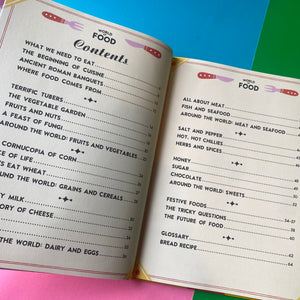 WORLD
FOOD
Contents
WHAT WE NEED TO EAT
THE BEGINNING OF CUISINE
ANCIENT ROMAN BANQUETS
WHERE FOOD COMES FROM
TERRIFIC TUBERS
THE VEGETABLE GARDEN
FRUITS AND NUTS
A FEAST OF FUNGI
AROUND THE WORLD: FRUITS AND VEGETABLES
CORNUCOPIA OF CORN
OF LIFE
EAT WHEAT
THE WORLD: GRAINS AND CEREALS
MILK
OF CHEESE
THE WORLD: DAIRY AND EGGS
WORLD
FOOD
ALL ABOUT MEAT
FISH AND SEAFOOD
AROUND THE WORLD: MEAT AND SEAFOOD
SALT AND PEPPER
HOT, HOT CHILLIES
HERBS AND SPICES
HONEY
SUGAR
CHOCOLATE
AROUND THE WORLD: SWEETS
FESTIVE FOODS
THE TRICKY QUESTIONS
THE FUTURE OF FOOD
GLOSSARY
BREAD RECIPE 64